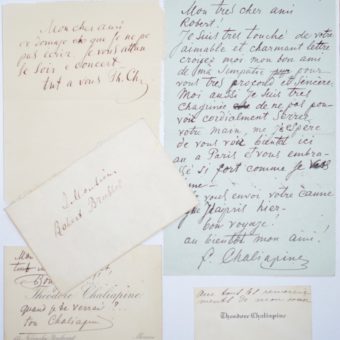 Mon cher ami
dommage que je ne pe
pas ecrire. Je vous attan
le soir a concert
tut a vous Th. Ch.
Mon tres cher ami
Robert!
Je suis tres touché de votre
aimable et charmant lettre
croyez moi mon bon ami
de ma simpatie pour
vous tres profond et sencere.
Moi aussi je suis tres
chagrinée de ne pas pou
voir cordialement serrer
votre main, me j'espère
de vous voir bientôt ici
au a Paris et vous embra-
sé si fort comme je
aime
vous envoi votre canne
que j'appris hier-
bon voyage.
au bientôt mon ami!
F. Chaliapine
à Monsieur
Robert Brussel
Mon
tut
Bon
Théodore Chaliapine
quand je te verrai?..
ton Chaliapin
Moscou
mon coeur
Théodore Chaliapine